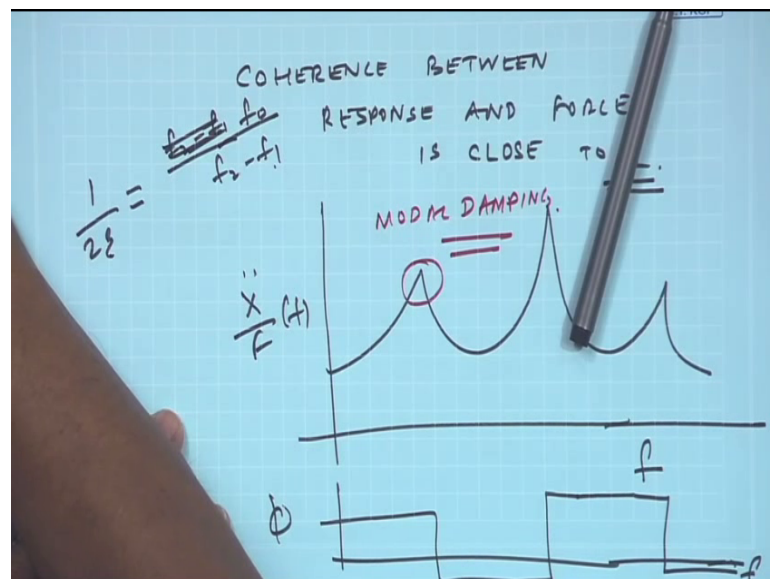 COHERENCE BETWEEN
RESPONSE AND FORCE
IS CLOSE TO
1/2ξ = f0/f2-f1
MODAL DAMPING.
Ẍ/F (f)
f
φ
f